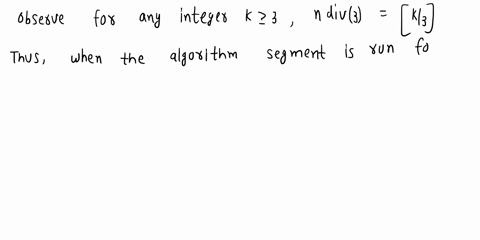 observe for any integer k ≥ 3 , n div(3) = [k/3]
Thus, when the algorithm segment is run fo